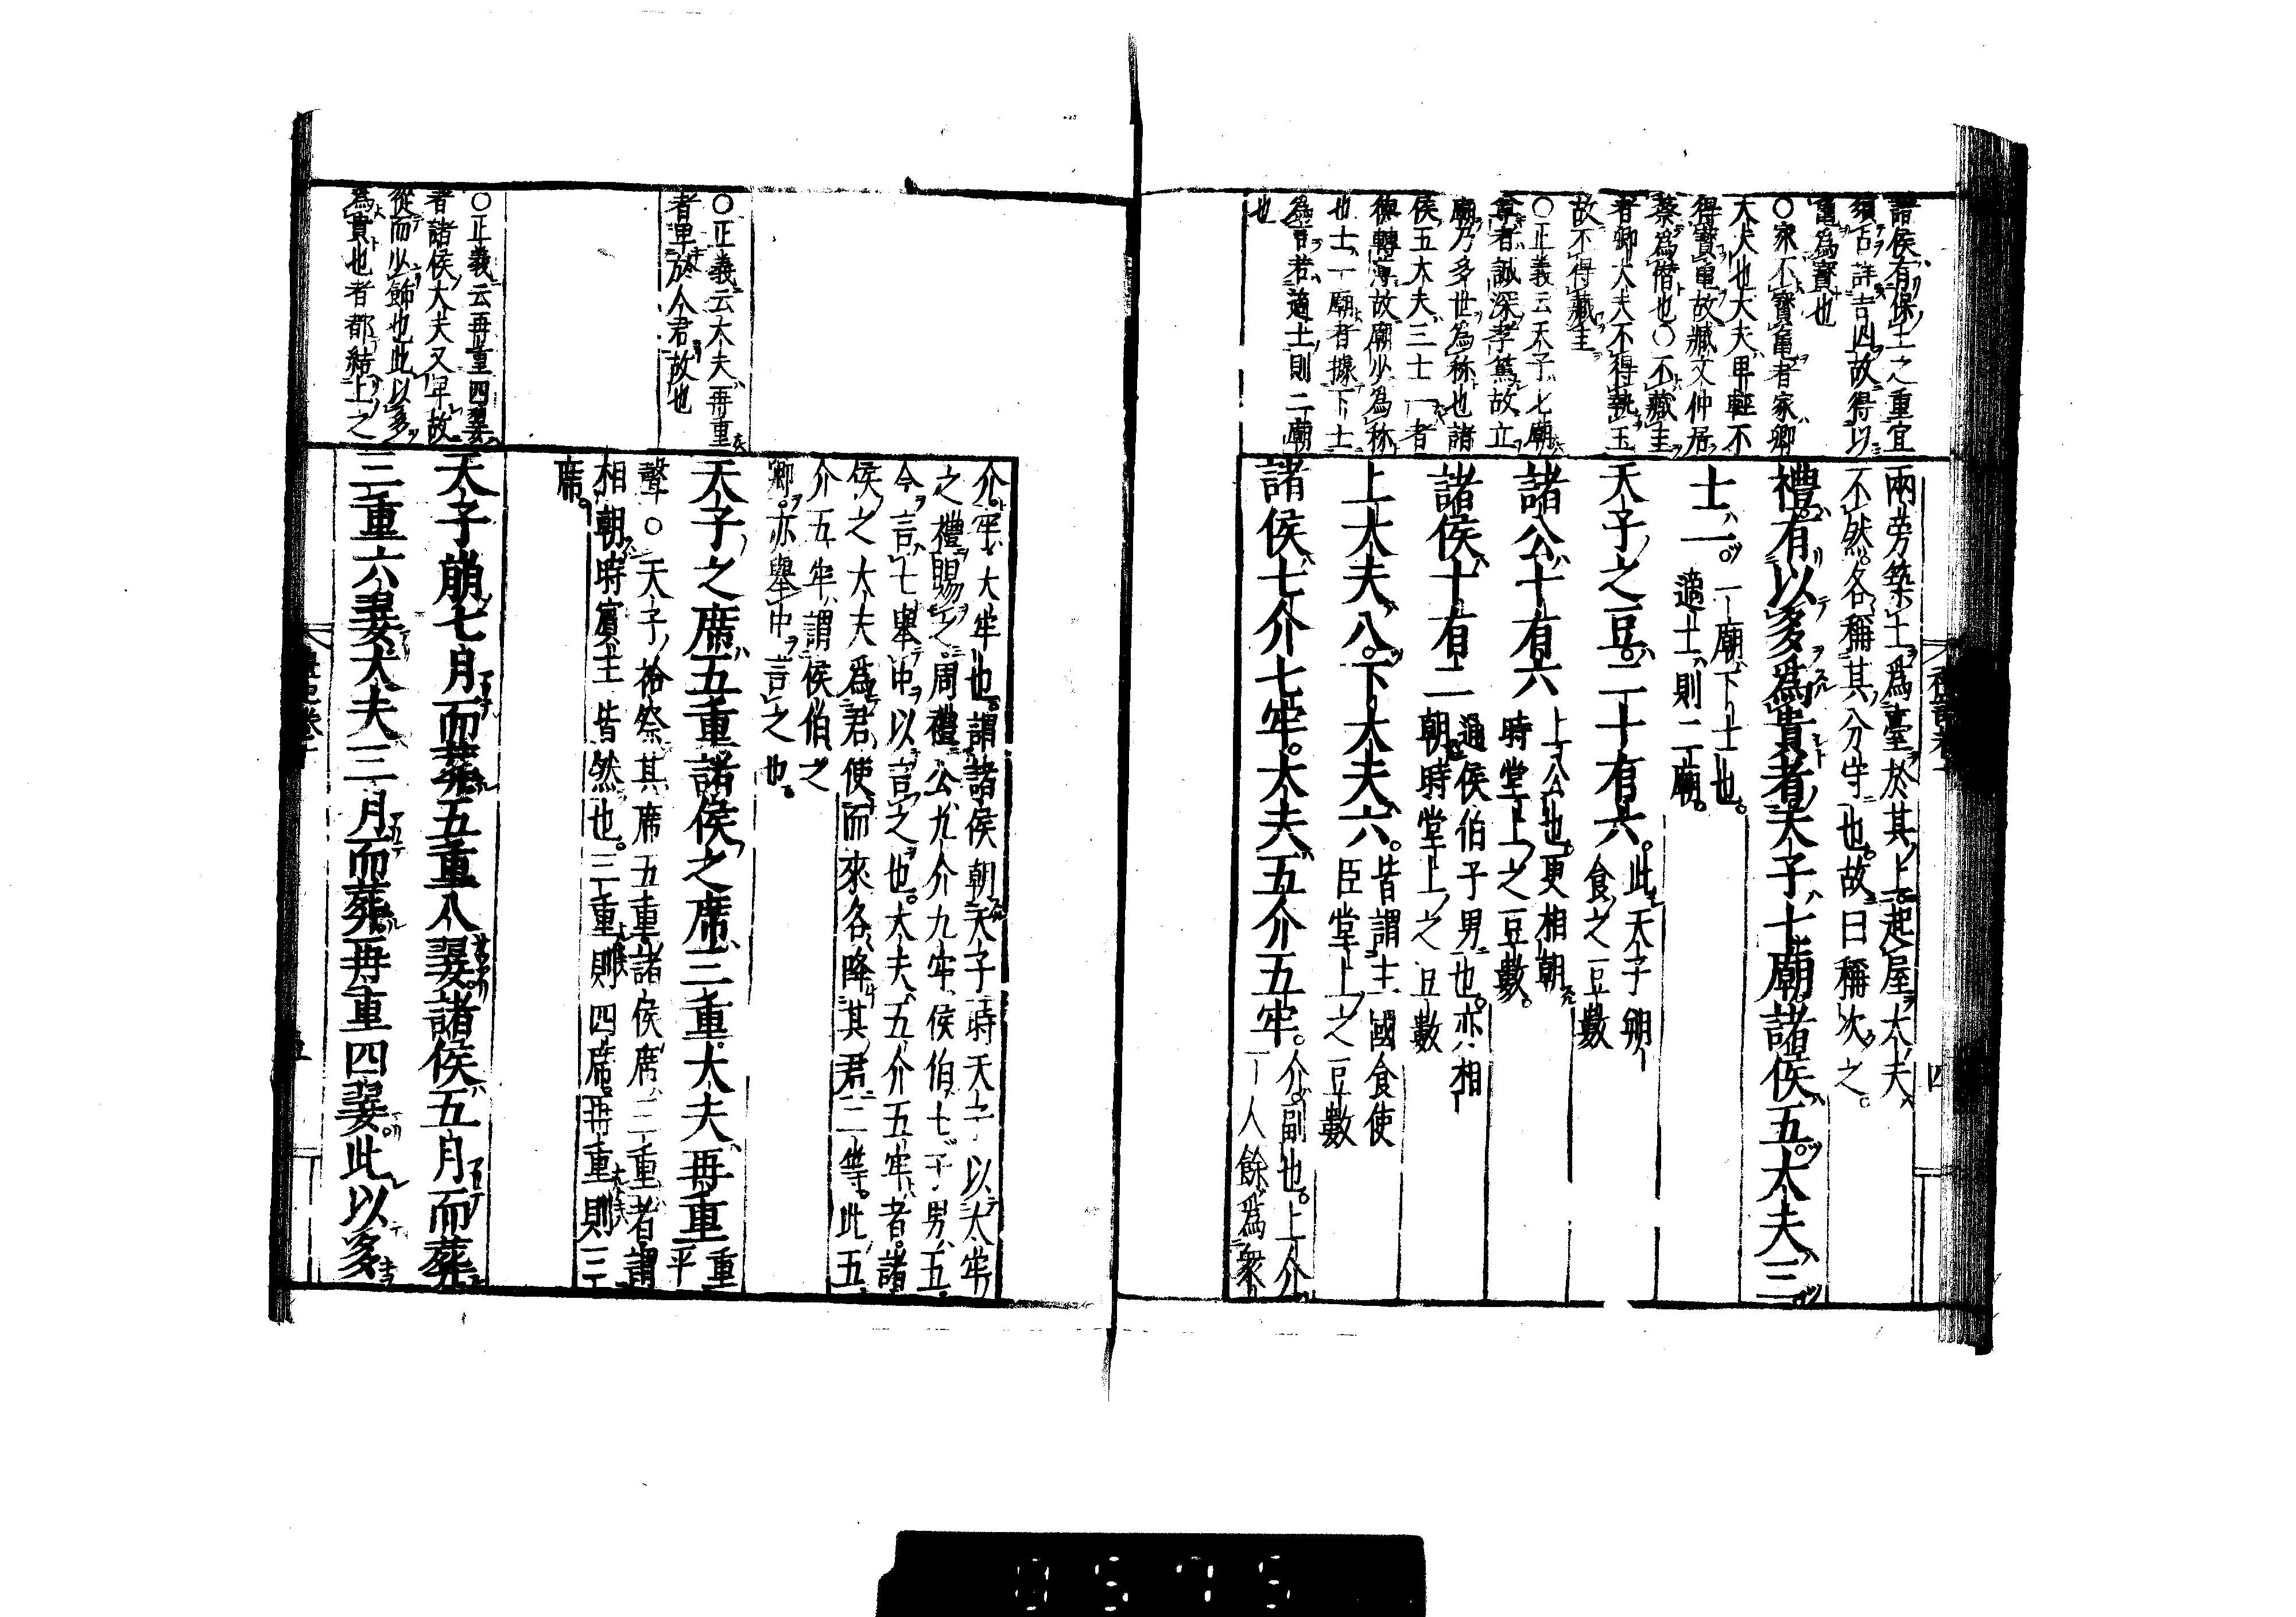 諸侯有保土之重宜
須占詳吉凶故得以
龜爲寳也
○家不寳龜者家卿
大夫也大夫卑輕不
得寳龜故臧文仲居
蔡爲僭也○不藏圭
者卿大夫不得執玉
故不得藏圭
○正義云天子七廟
尊者誠深孝篤故立
廟乃多世爲称也諸
侯五大夫三士一者
德轉薄故廟少爲称
也士一廟者據下士
爲言若適士則二廟
也
兩旁築土爲臺於其上起屋大夫
不然各稱其分守也故曰稱次之
禮有以多爲貴者天子七廟諸侯五大夫三
士一
一廟下士也
適士則二廟
天子之豆二十有六
此天子朔
食之豆數
諸公十有六
上公也更相朝
時堂上之豆數
諸侯十有二
通侯伯子男也亦相
朝時堂上之豆數
上大夫八下大夫六
皆謂主國食使
臣堂上之豆數
諸侯七介七牢大夫五介五牢
介副也上介
一人餘爲衆
四
○正義云大夫再重
者卑於人君故也
○正義云再重四翣
者諸侯大夫又卑故
從而少飾也此以多
爲貴也者都結上之
介牢大牢也謂諸侯朝天子時天子以太牢
之禮賜之周禮公九介九牢侯伯七子男五
今言七舉中以言之也大夫五介五牢者諸
侯之大夫爲君使而來各降其君二等此五
介五牢謂侯伯之
卿亦舉中言之也
天子之席五重諸侯之席三重大夫再重
重平
聲○天子祫祭其席五重諸侯席三重者謂
相朝時賓主皆然也三重則四席再重則三
席
天子崩七月而葬五重八翣諸侯五月而葬
三重六翣大夫三月而葬再重四翣此以多
五
0575